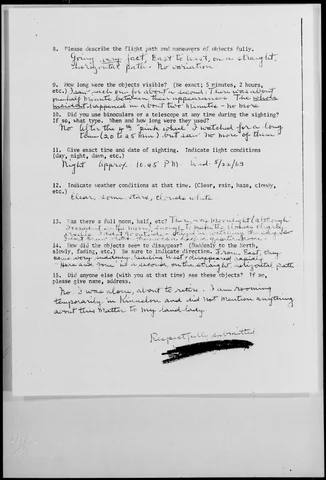 8. Please describe the flight path and maneuvers of objects fully.
Going very fast, East to West, on a straight,
horizontal path. No variation
9. How long were the objects visible? (Be exact; 5 minutes, 2 hours,
etc.) I saw each one for about a second. There was about
one half minute between their appearances. The whole
incident happened in about two minutes - no more
10. Did you use binoculars or a telescope at any time during the sighting?
If so, what type. When and how long were they used?
No. After the 4th "pink wheel" I watched for a long
time (20 to 25 min) but saw no more of them
11. Give exact time and date of sighting. Indicate light conditions
(day, night, dawn, etc.)
Night Approx 10.45 P.M. Wed. 5/22/63
12. Indicate weather conditions at that time. (Clear, rain, haze, cloudy,
etc.)
Clear, some stars, clouds white
13. Was there a full moon, half, etc? There was moonlight (although
I the moon, enough to make the clouds clearly
visible.
14. How did the objects seem to disappear? (Suddenly to the North,
slowly, fading, etc.) Be sure to indicate direction. From East, they
came very suddenly, & disappeared rapidly
Here and gone in a second, on the straight, horizontal path
15. Did anyone else (with you at that time) see these objects? If so,
please give name, address.
No. I was alone, about to retire. I am rooming
temporarily in and did not mention anything
about this matter to my landlady.
Respectfully submitted